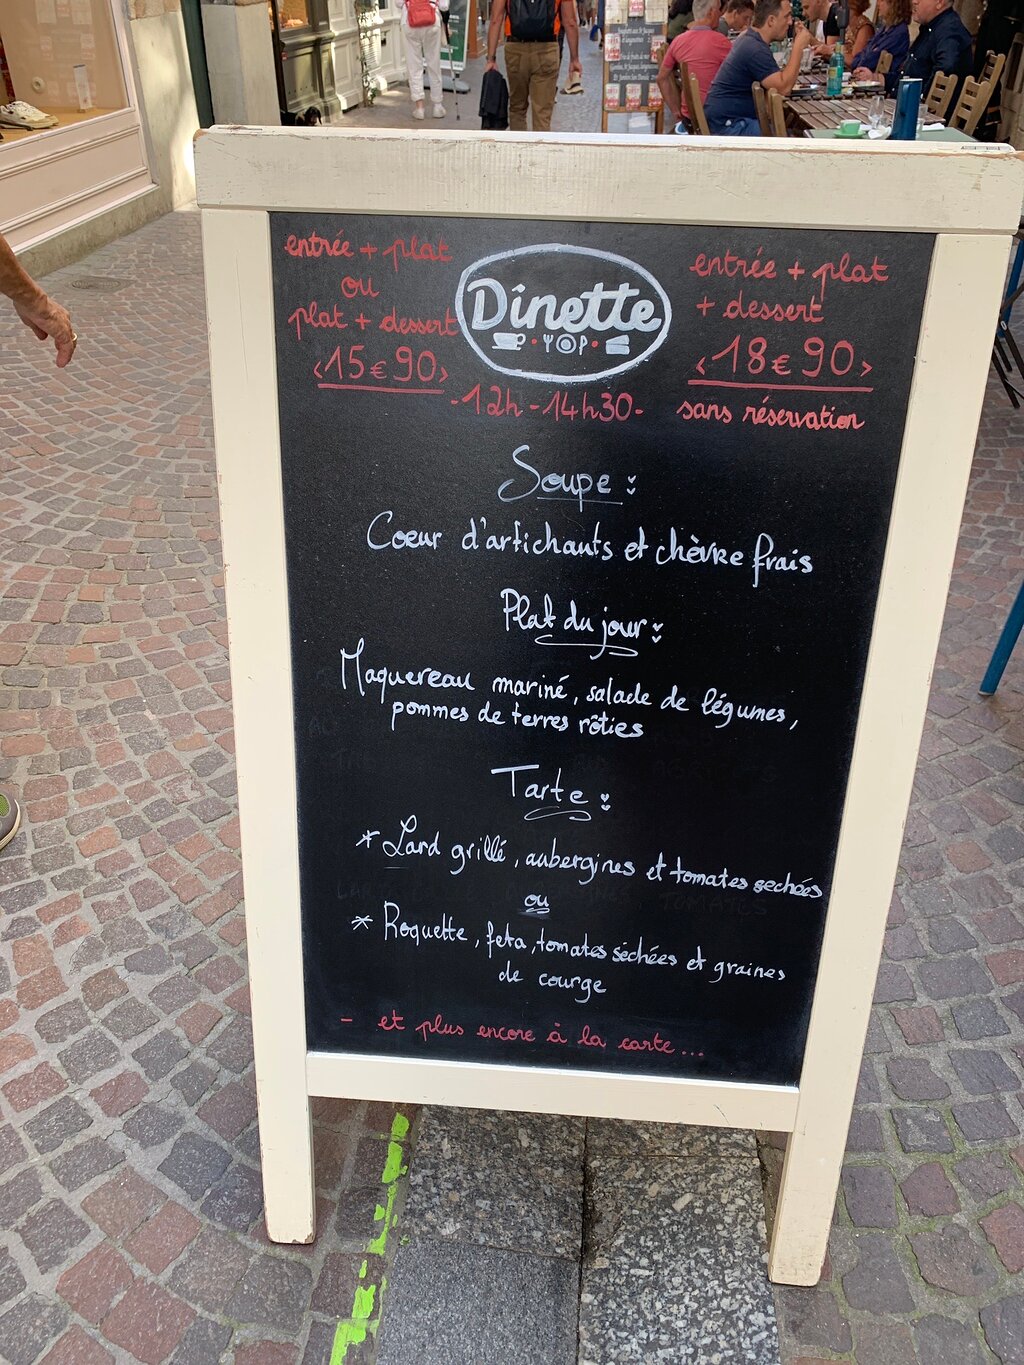 entrée + plat
ou
plat + dessert
<15€90>
Dînette
-12h-14h30-
entrée + plat
+ dessert
<18€90>
sans réservation
Soupe :
Coeur d'artichauts et chèvre frais
Plat du jour :
Maquereau mariné, salade de légumes,
pommes de terres rôties
Tarte :
* Lard grillé, aubergines et tomates sechées
ou
* Roquette, feta, tomates séchées et graines
de courge
- et plus encore à la carte...